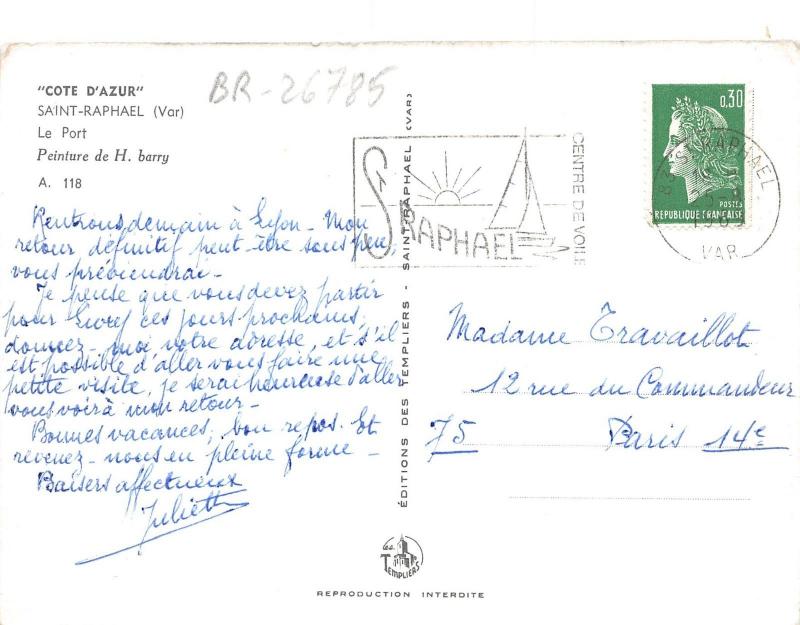 "COTE D'AZUR"
SAINT-RAPHAEL (Var)
Le Port
Peinture de H. barry
A. 118
BR-26785
Rentrons demain à Lyon - Mon
retour définitif peut-être sous peu,
vous préviendrai -
Je pense que vous devez partir
pour ces jours prochains,
donnez-moi votre adresse, et s'il
est possible d'aller vous faire une
petite visite, je serai heureuse d'aller
vous voir à mon retour -
Bonnes vacances, bon repos. Et
revenez-nous en pleine forme -
Baisers affectueux
Juliette
ÉDITIONS DES TEMPLIERS - SAINT-RAPHAEL (VAR)
St RAPHAEL
CENTRE DE VOILE
0,30
POSTES
RÉPUBLIQUE FRANÇAISE
ST RAPHAEL
VAR
Madame Travaillot
12 rue du Commandeur
75 Paris 14e
Les Templiers
REPRODUCTION INTERDITE